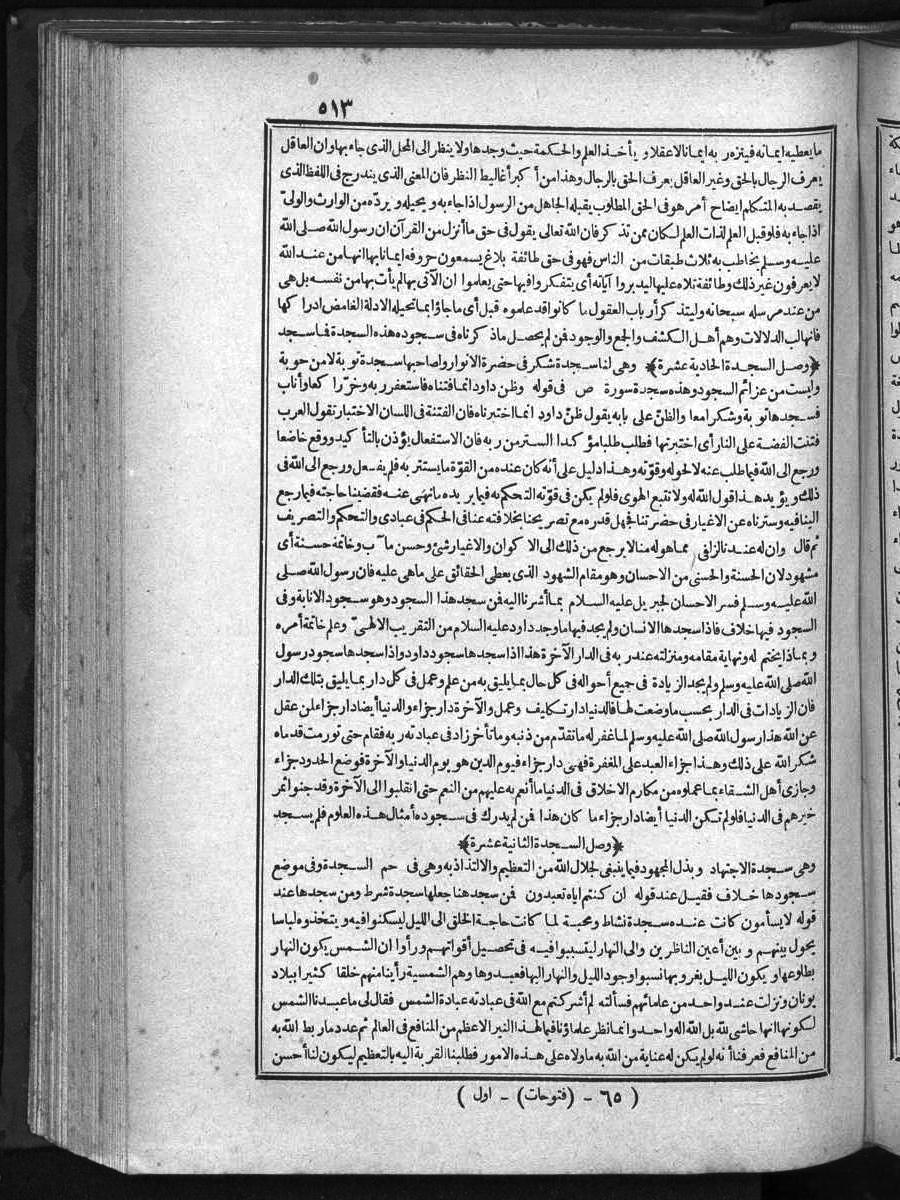 ٥١٣
ما يعطيه ايمانه فيتزه ربه ايمانا لاعقلا ويأخذ العلم والحكمة حيث وجدها ولا ينظر الى المحل الذى جاء بها وان العاقل
يعرف الرجال بالحق وغير العاقل يعرف الحق بالرجال وهذا من أكبر أغاليط النظر فان المعنى الذى يندرج فى اللفظ الذى
يقصد به المتكلم ايضاح أمر هو فى الحق المطلوب يقبله الجاهل من الرسول اذا جاء به ويحيله ويردّه من الوارث والولىّ
اذا جاء به فلو قبل العلم لذات العلم لكان ممن تذكر فان الله تعالى يقول فى حق ما أنزل من القرآن ان رسول الله صلى الله
عليه وسلم يخاطب به ثلاث طبقات من الناس فهو فى حق طائفة بلاغ يسمعون حروفه ايمانا بها انها من عند الله
لا يعرفون غير ذلك وطائفة تلاه عليها ليدبروا آياته أى يتفكروا فيها حتى يعلموا ان الآتى بها لم يأت بها من نفسه بل هى
من عند مرسله سبحانه وليتذكر أرباب العقول ما كانوا قد علموه قبل أى ما جاؤا بما تحيله الادلة الغامض ادراكها
فانها لب الدلالات وهم أهل الكشف والجع والوجود فمن لم يحصل ماذكرناه فى سجوده هذه السجدة فاسجد
﴿وصل السجدة الحادية عشرة﴾ وهى لنا سجدة شكر فى حضرة الانوار ولصاحبها سجدة توبة لا من حوبة
وليست من عزائم السجود وهذه سجدة سورة ص فى قوله وظن داود انما فتناه فاستغفر ربه وخرّ راكعا وأناب
فسجدها توبة وشكرا معا والظنّ على بابه يقول ظنّ داود انما اختبرناه فان الفتنة فى اللسان الاختبار تقول العرب
فتنت الفضة على النار أى اختبرتها فطلب طلبا مؤكدا الستر من ربه فان الاستفعال يؤذن بالتأكيد ووقع خاضعا
ورجع الى الله فيما طلب عنه لا لحوله وقوّته وهذا دليل على أنه كان عنده من القوّة ما يستتر به فلم يفعل ورجع الى الله فى
ذلك ويؤيد هذا قول الله له ولا تتبع الهوى فلو لم يكن فى قوّته التحكم به فيما يريده مانهى عنه فقضينا حاجته فيما رجع
الينا فيه وسترناه عن الاغيار فى حضرتنا فجهل قدره مع تصريحنا بخلافته عنا فى الحكم فى عبادى والتحكم والتصريف
ثم قال وان له عندنا لزلفى مما هو له منا لا يرجع من ذلك الى الاكوان والاغيار شئ وحسن مآب وخاتمة حسنة أى
مشهود لان الحسنة والحسنى من الاحسان وهو مقام الشهود الذى يعطى الحقائق على ماهى عليه فان رسول الله صلى
الله عليه وسلم فسر الاحسان لجبريل عليه السلام بما أشرنا اليه فمن سجد هذا السجود وهو سجود الانابة وفى
السجود فيها خلاف فاذا سجدها الانسان ولم يجد فيها ما وجد داود عليه السلام من التقريب الالهىّ وعلم خاتمة أمره
وبماذا يختم له ونهاية مقامه ومنزلته عند ربه فى الدار الآخرة هذا اذا سجدها سجود داود واذا سجدها سجود رسول
الله صلى الله عليه وسلم ولم يجد الزيادة فى جميع أحواله فى كل حال بما يليق به من علم وعمل فى كل دار بما يليق بتلك الدار
فان الزيادات فى الدار بحسب ما وضعت لها فالدنيا دار تكليف وعمل والآخرة دار جزاء والدنيا أيضا دار جزاء لمن عقل
عن الله هذا رسول الله صلى الله عليه وسلم لما غفر له ما تقدّم من ذنبه وما تأخر زاد فى عبادته ربه فقام حتى تورمت قدماه
شكر الله على ذلك وهذا جزاء العبد على المغفرة فهى دار جزاء فيوم الدين هو يوم الدنيا والآخرة فوضع الحدود جزاء
وجازى أهل الشقاء بما عملوه من مكارم الاخلاق فى الدنيا ما أنعم به عليهم من النعم حتى انقلبوا الى الآخرة وقد جنوا ثمر
خيرهم فى الدنيا فلو لم تكن الدنيا أيضا دار جزاء ما كان هذا فمن لم يدرك فى سجوده أمثال هذه العلوم فلم يسجد
﴿وصل السجدة الثانية عشرة﴾
وهى سجدة الاجتهاد وبذل المجهود فيما ينبغى لجلال الله من التعظيم والالتذاذ به وهى فى حم السجدة وفى موضع
سجودها خلاف فقيل عند قوله ان كنتم اياه تعبدون فمن سجد هنا جعلها سجدة شرط ومن سجدها عند
قوله لا يسأمون كانت عنده سجدة نشاط ومحبة لما كانت حاجة الخلق الى الليل ليسكنوا فيه ويتخذوه لباسا
يحول بينهم وبين أعين الناظرين والى النهار ليتسببوا فيه فى تحصيل أقواتهم ورأوا ان الشمس يكون النهار
بطلوعها ويكون الليل بغروبها نسبوا وجود الليل والنهار اليها فعبدوها وهم الشمسية رأينا منهم خلقا كثيرا ببلاد
يونان ونزلت عند واحد من علمائهم فسألته لم أشركتم مع الله فى عبادته عبادة الشمس فقال لى ما عبدنا الشمس
لكونها انها حاشى لله بل الله اله واحد وانما نظر علماؤنا فيما لهذا النير الاعظم من المنافع فى العالم ثم عدد ما ربط الله به
من المنافع فعرفنا أنه لو لم يكن له عناية من الله به ما ولاه على هذه الامور فطلبنا القربة اليه بالتعظيم ليكون لنا أحسن
( ٦٥ - (فتوحات) - اول )